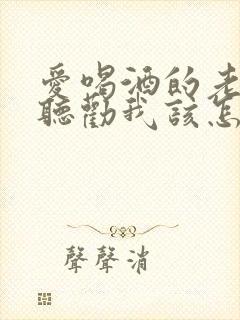 愛喝酒的老
聽勸我該怎
聲聲消